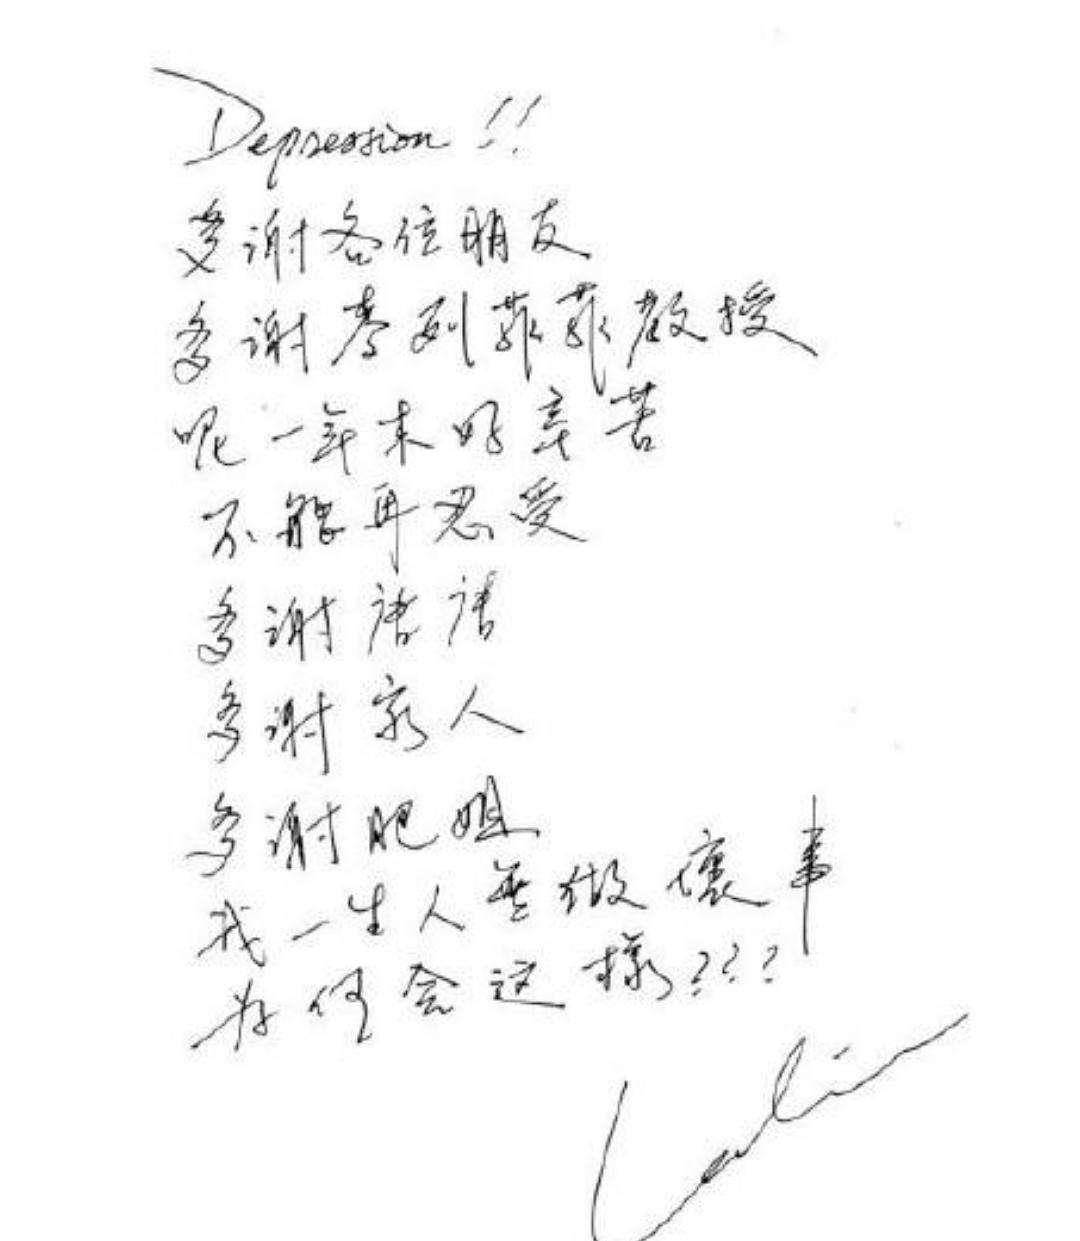 Depression !!
多谢各位朋友
多谢麥列菲菲教授
呢一年来好辛苦
不能再忍受
多谢唐唐
多谢家人
多谢肥姐
我一生人無做壞事
为何会这樣???
Leslie